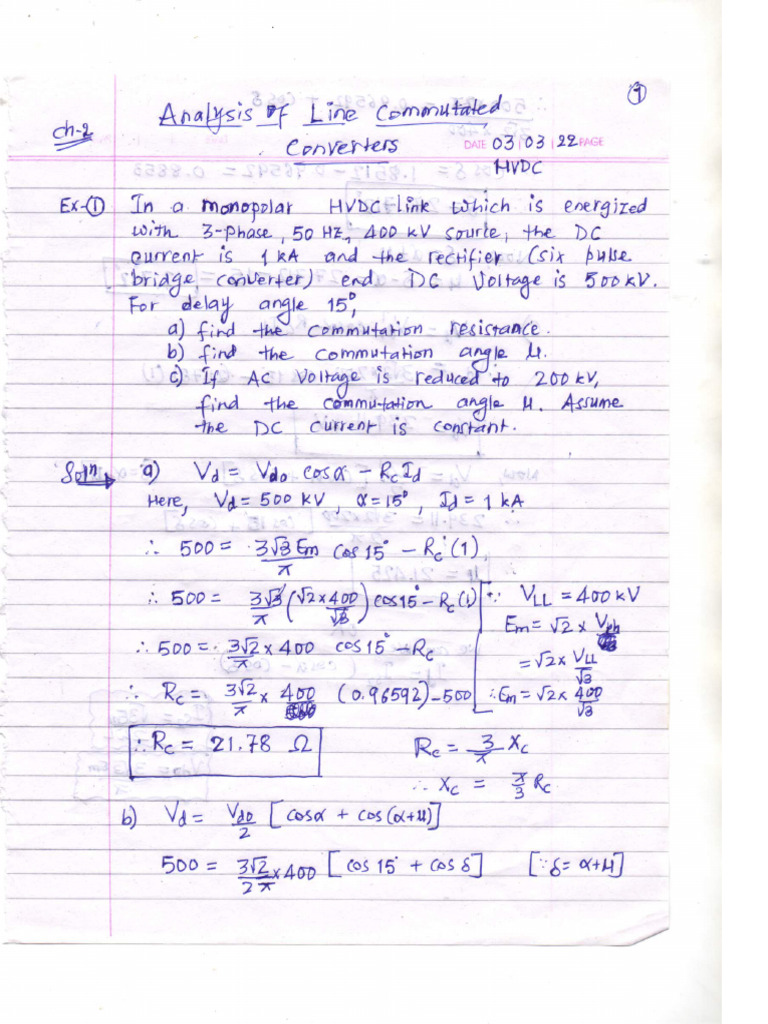 ①
Analysis of Line Commutated
ch-2
Converters
DATE 03 | 03 | 22 PAGE
HVDC
Ex-① In a monopolar HVDC link which is energized
with 3-phase, 50 HZ, 400 kV source, the DC
current is 1 kA and the rectifier (six pulse
bridge converter) end DC Voltage is 500 kV.
For delay angle 15°,
a) find the commutation resistance.
b) find the commutation angle μ.
c) If AC Voltage is reduced to 200 kV,
find the commutation angle μ. Assume
the DC current is constant.
Soln → a) Vd = Vdo cosα - RcId
Here, Vd = 500 kV, α = 15°, Id = 1 kA
∴ 500 = 3√3 Em/π cos 15° - Rc (1)
∴ 500 = 3√3/π (√2 × 400/√3) cos 15° - Rc(1)
∵ VLL = 400 kV
Em = √2 × Vph
∴ 500 = 3√2/π × 400 cos 15° - Rc
= √2 × VLL/√3
∴ Rc = 3√2/π × 400 (0.96592) - 500
∴ Em = √2 × 400/√3
∴ Rc = 21.78 Ω
Rc = 3/π Xc
∴ Xc = π/3 Rc
b) Vd = Vdo/2 [cosα + cos(α+μ)]
500 = 3√2/2π × 400 [cos 15° + cos δ] [∵ δ = α+μ]